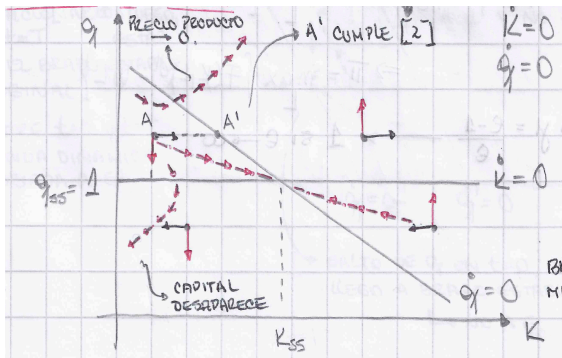 q
PRECIO PRODUCTO
→ 0.
A' CUMPLE [2]
K̇=0
q̇=0
A
A'
q_ss = 1
K̇=0
CAPITAL
DESAPARECE
q̇=0
K_ss
K